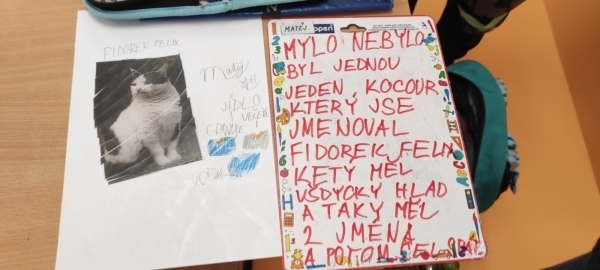 FIDOREK FELIX
JÍDLO
MATĚJ
MYLO NEBYLO
BYL JEDNOU
JEDEN, KOCOUR
KTERÝ JSE
JMENOVAL
FIDOREK FELIX
KETÝ MĚL
UŠDYCKY HLAD
A TAKY MĚL
2 JMÉNA
A POTOM ŠEL